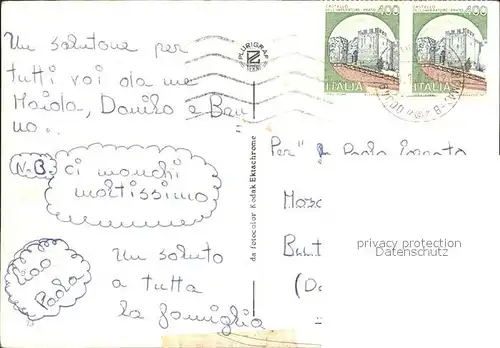 Un salutone per
tutti voi da me
Maida, Danilo e Bau
no...
N.B.
ci manchi
moltissimo
Ciao
Paola
Un saluto
a tutta
la famiglia
PLURIGRAF
da fotocolor Kodak Ektachrome
CASTELLO
DELL'IMPERATORE · PRATO
400
ITALIA
CASTELLO
DELL'IMPERATORE · PRATO
400
ITALIA
Per
Paolo
Mosc
privacy protection
Datenschutz